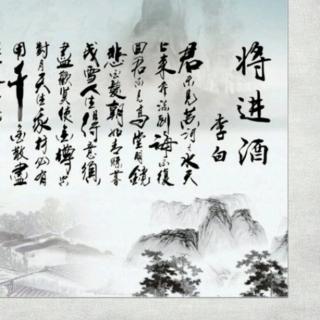 将进酒
李白
君不见黄河之水天
上来奔流到海不復
回君不见高堂明镜
悲白髮朝如青丝暮
成雪人生得意须
盡歡莫使金樽空
对月天生我材必有
用千金散盡